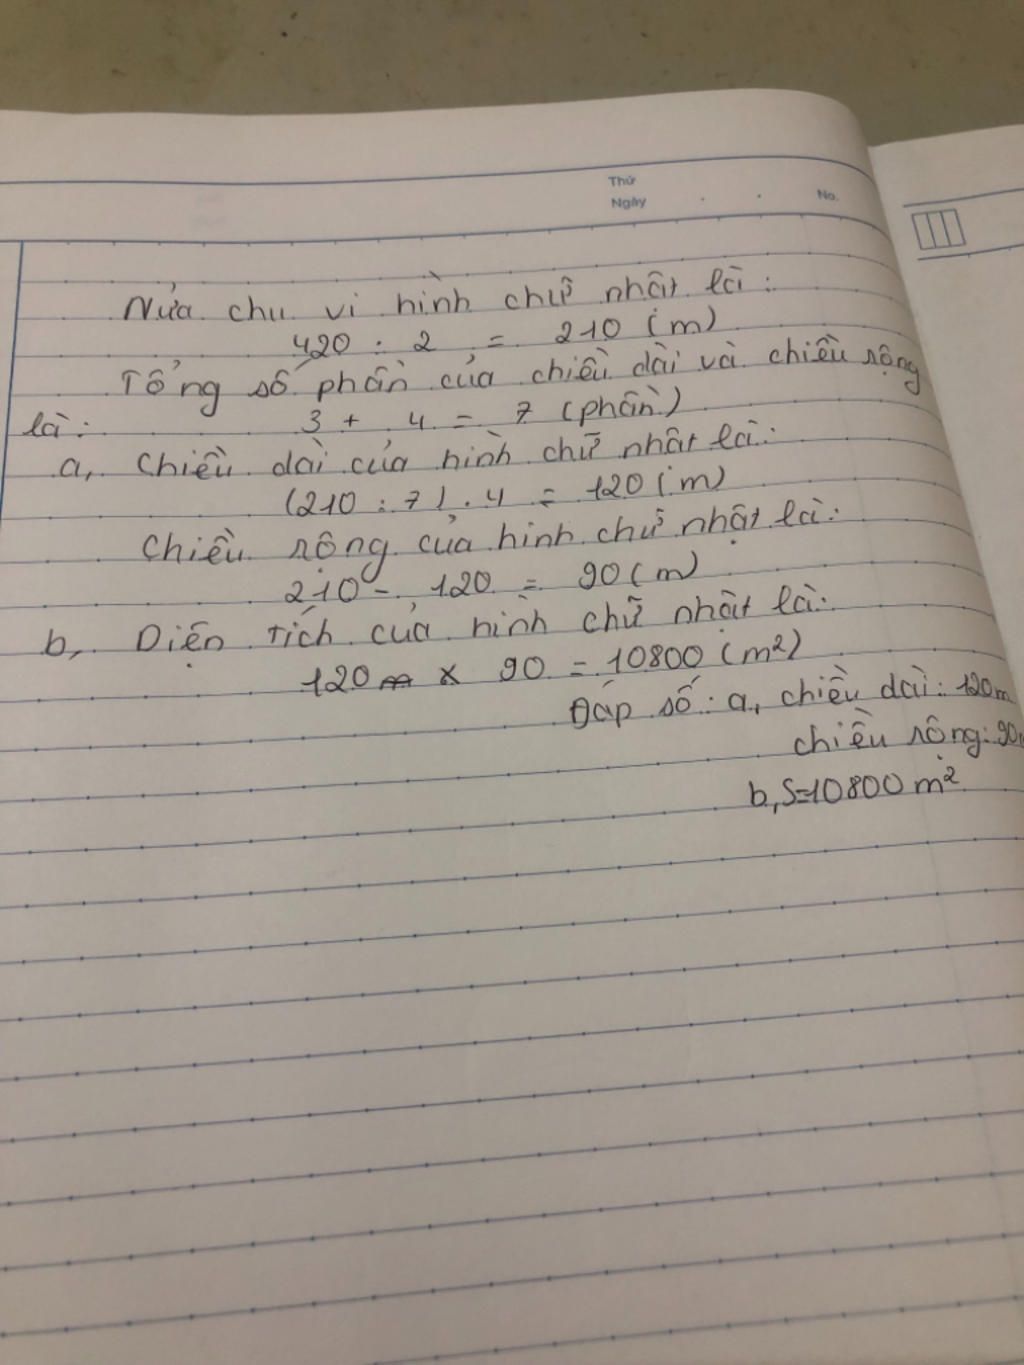 Thứ
Ngày . . No.
Nửa chu vi hình chữ nhật là:
420 : 2 = 210 (m)
Tổng số phần của chiều dài và chiều rộng
là: 3 + 4 = 7 (phần)
a, Chiều dài của hình chữ nhật là:
(210 : 7) . 4 = 120 (m)
Chiều rộng của hình chữ nhật là:
210 - 120 = 90 (m)
b, Diện tích của hình chữ nhật là:
120 x 90 = 10800 (m²)
Đáp số: a, chiều dài: 120m
chiều rộng: 90m
b, S=10800 m²